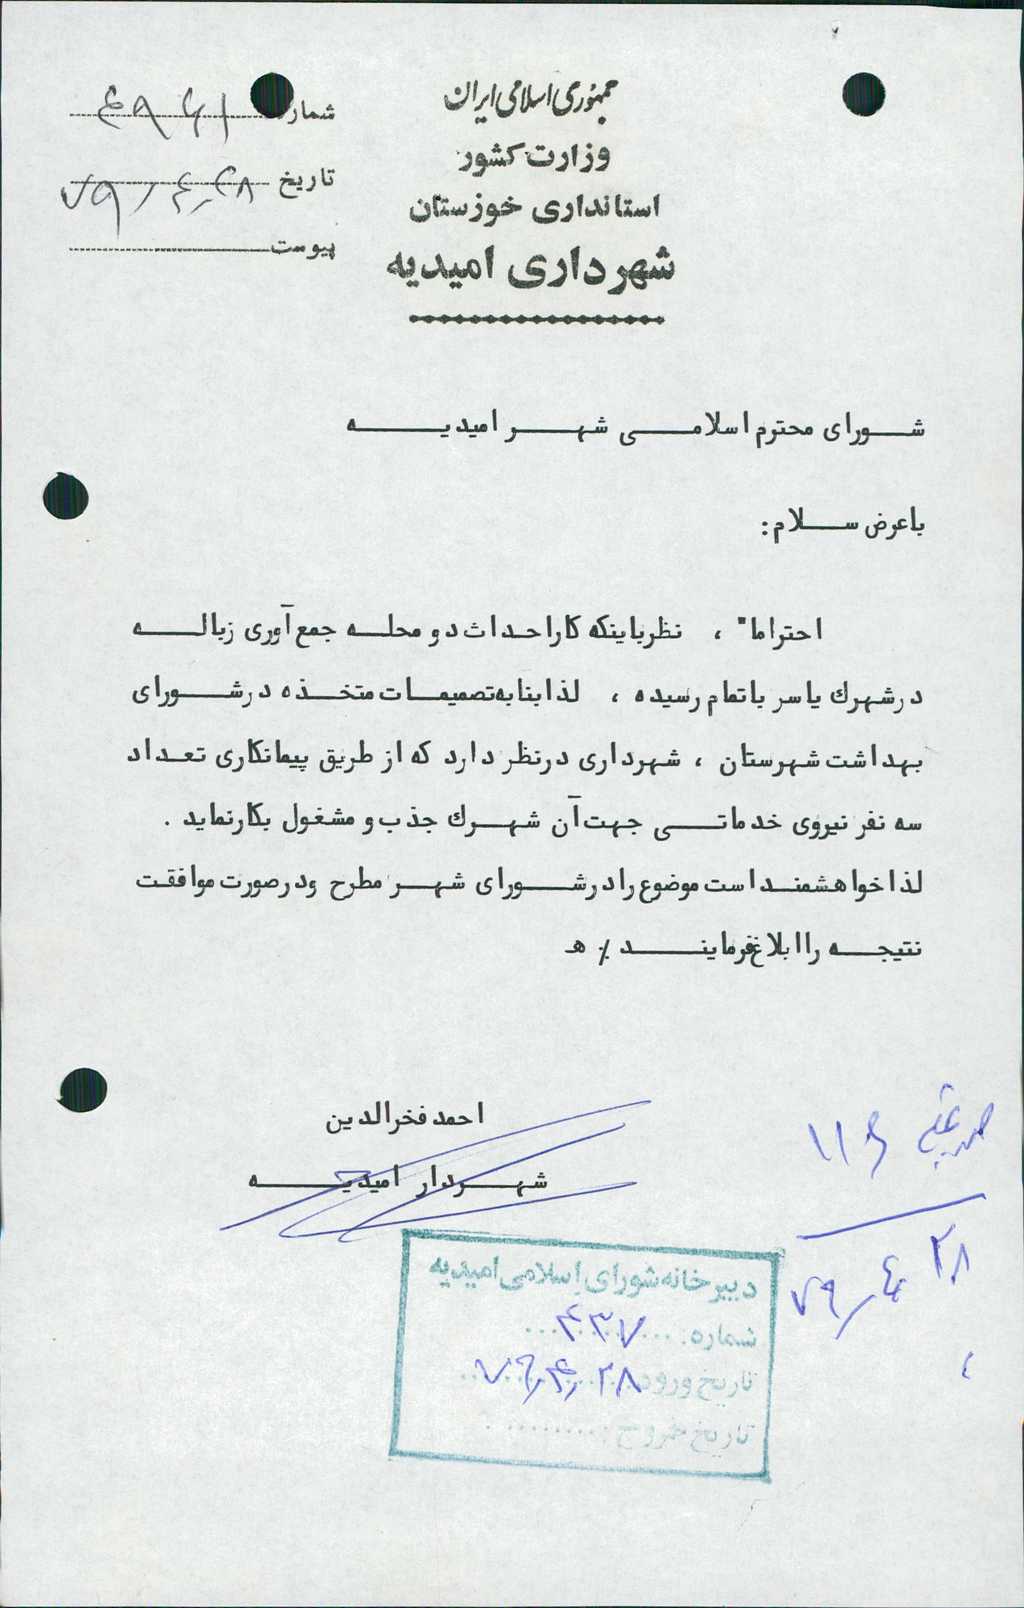 جمهوری اسلامی ایران
وزارت کشور
استانداری خوزستان
شهرداری امیدیه
شماره ۴۹۶۱
تاریخ ۷۹/۴/۲۸
پیوست
شورای محترم اسلامی شهر امیدیه
باعرض سلام:
احتراما" ، نظرباینکه کاراحداث دو محله جمع آوری زباله
درشهرك یاسر باتمام رسیده ، لذا بنابه تصمیمات متخذه درشورای
بهداشت شهرستان ، شهرداری درنظر دارد که از طریق پیمانکاری تعداد
سه نفر نیروی خدماتی جهت آن شهرك جذب و مشغول بکارنماید .
لذا خواهشمند است موضوع را درشورای شهر مطرح ودرصورت موافقت
نتیجه را ابلاغ فرمایند ٪ ه
احمد فخرالدین
شهردار امیدیه
۷۹/۴/۲۸
دبیرخانه شورای اسلامی امیدیه
شماره: ۴۳۷
تاریخ ورود: ۷۹/۴/۲۸
تاریخ خروج: